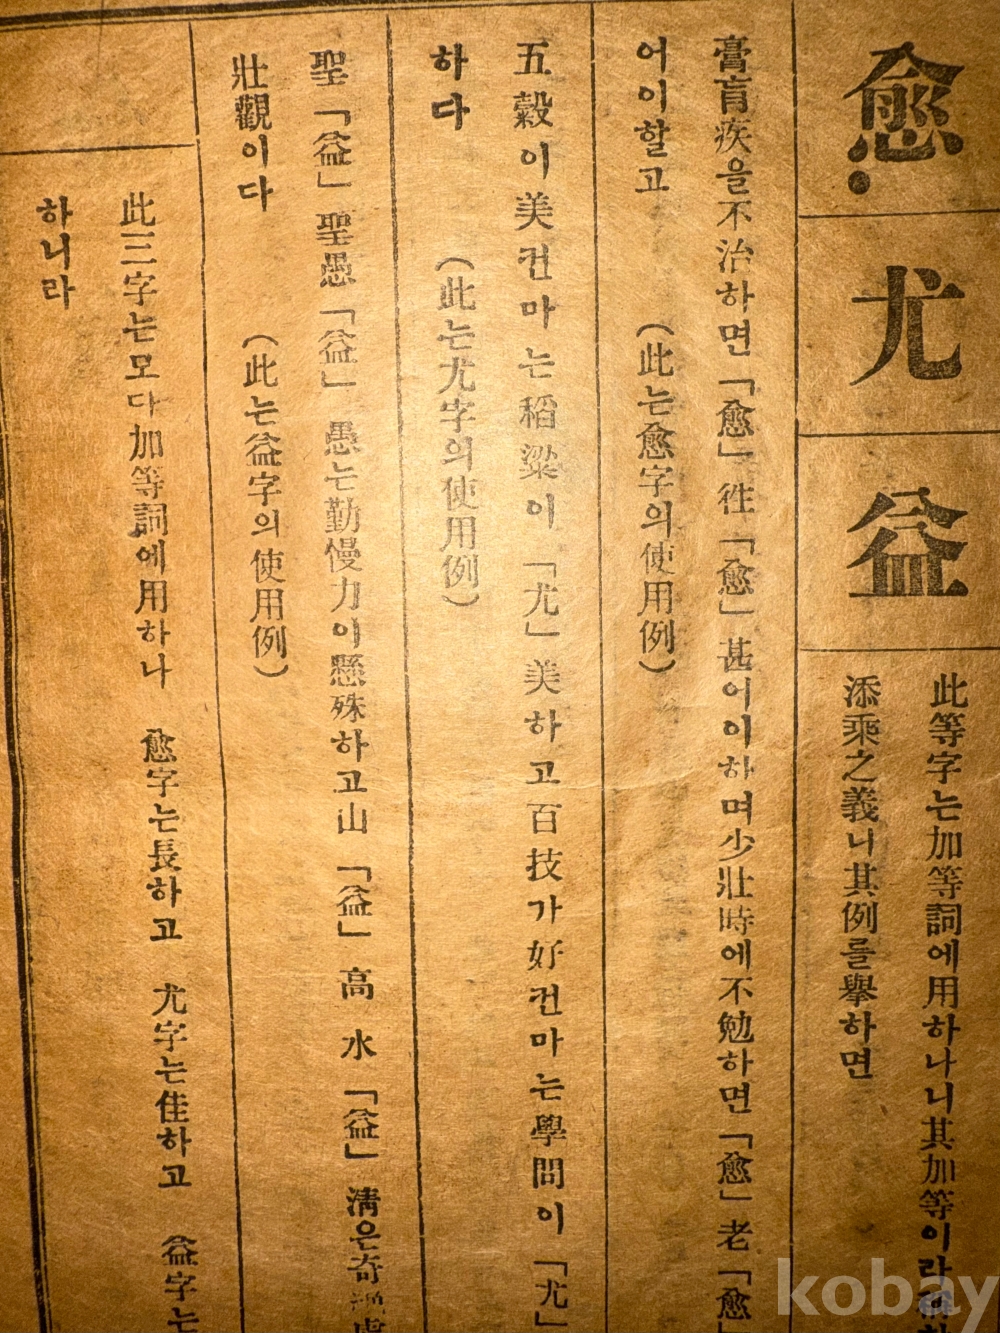 愈 尤 益
此等字는加等詞에用하나니其加等이라
添乘之義니其例를擧하면
膏肓疾을不治하면「愈」徃「愈」甚어이하며少壯時에不勉하면「愈」老「愈」
어이할고 (此는愈字의使用例)
五穀이美컨마는稻粱이「尤」美하고百技가好컨마는學問이「尤」
하다 (此는尤字의使用例)
聖「益」聖愚「益」愚는勤慢力이懸殊하고山「益」高 水「益」淸은奇
壯觀이다 (此는益字의使用例)
此三字는모다加等詞에用하나 愈字는長하고 尤字는佳하고 益字는
하니라
kobay